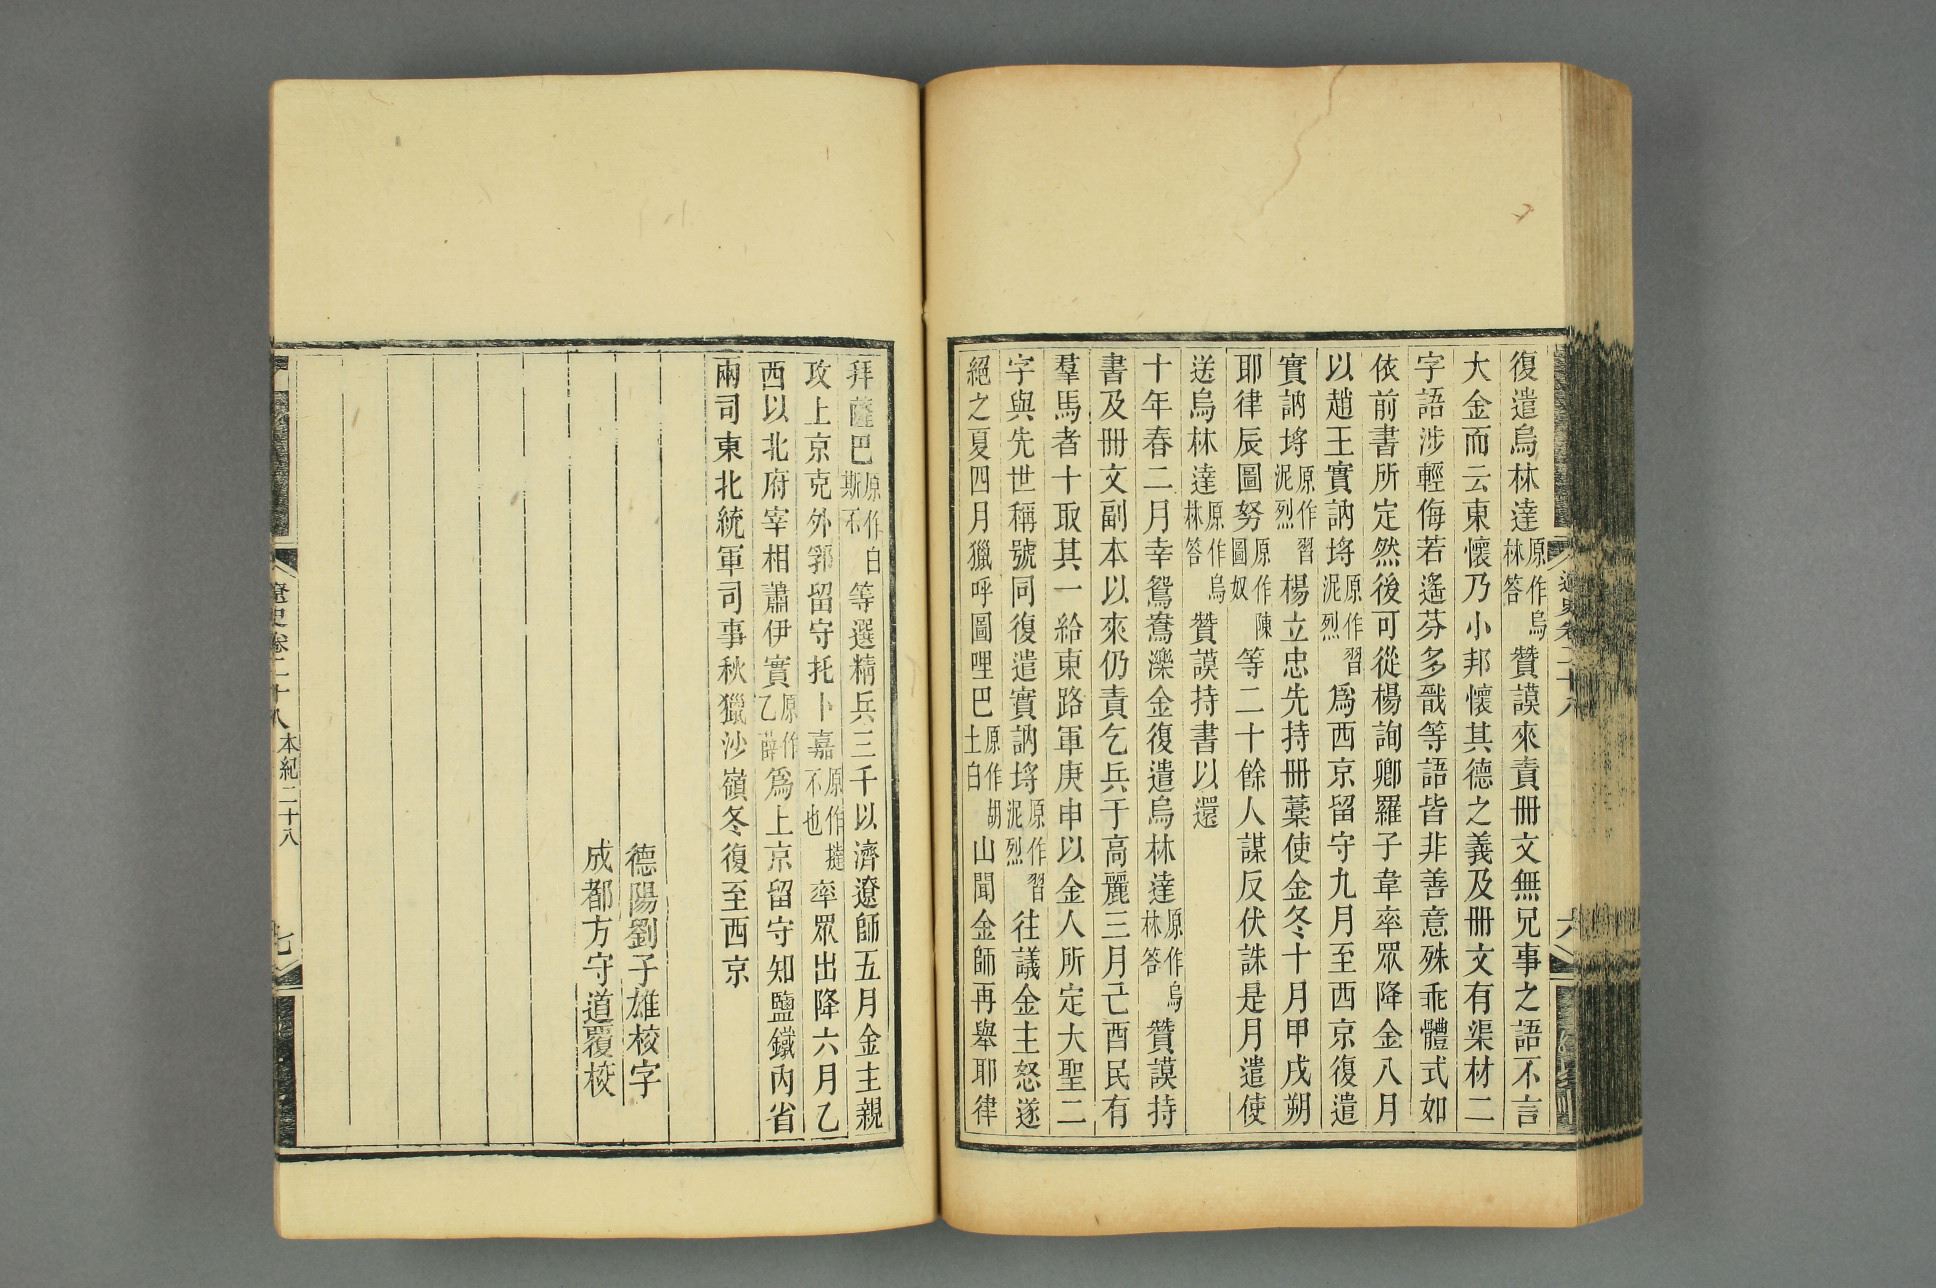 復遣烏林達原作烏林答贊謨來責冊文無兄事之語不言
大金而云東懷乃小邦懷其德之義及冊文有渠材二
字語涉輕侮若遙芬多戩等語皆非善意殊乖體式如
依前書所定然後可從楊詢卿羅子韋率眾降金八月
以趙王實訥埒原作習泥烈爲西京留守九月至西京復遣
實訥埒原作習泥烈楊立忠先持冊藁使金冬十月甲戌朔
耶律辰圖努原作陳圖奴等二十餘人謀反伏誅是月遣使
送烏林達原作烏林答贊謨持書以還
十年春二月幸鴛鴦濼金復遣烏林達原作烏林答贊謨持
書及冊文副本以來仍責乞兵于高麗三月己酉民有
羣馬者十取其一給東路軍庚申以金人所定大聖二
字與先世稱號同復遣實訥埒原作習泥烈往議金主怒遂
絕之夏四月獵呼圖哩巴原作胡土白山聞金師再舉耶律
遼史卷二十八
六
拜薩巴原作白斯不等選精兵三千以濟遼師五月金主親
攻上京克外郛留守托卜嘉原作撻不也率眾出降六月乙
西以北府宰相蕭伊實原作乙薛爲上京留守知鹽鐵內省
兩司東北統軍司事秋獵沙嶺冬復至西京
德陽劉子雄校字
成都方守道覆校
遼史卷二十八 本紀二十八
七